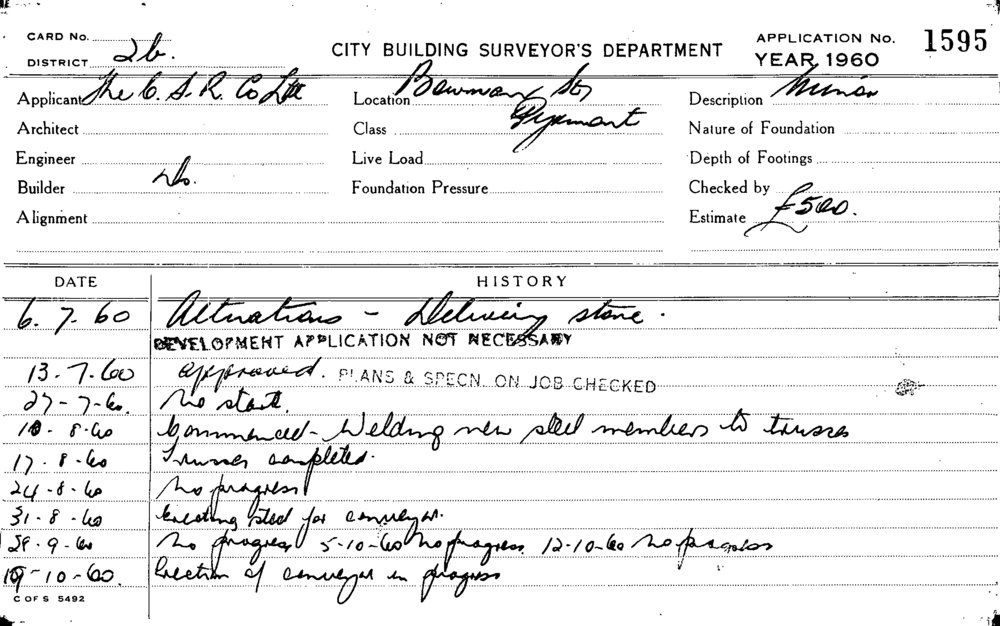 CARD No.
DISTRICT 2b.
CITY BUILDING SURVEYOR'S DEPARTMENT
APPLICATION No. 1595
YEAR 1960
Applicant The C. S. R. Co Ltd
Location Bowman St,
Pyrmont
Description Minor
Architect
Class
Nature of Foundation
Engineer
Live Load
Depth of Footings
Builder do.
Foundation Pressure
Checked by
Alignment
Estimate £500.
DATE HISTORY
6. 7. 60 Alterations - Delivery store.
DEVELOPMENT APPLICATION NOT NECESSARY
13. 7. 60 approved. PLANS & SPECN. ON JOB CHECKED
27-7-60. No start.
10. 8. 60 Commenced - Welding new steel members to trusses
17. 8. 60 Trusses completed.
24-8-60 No progress
31-8-60 Erecting steel for conveyor.
28-9-60 No progress 5-10-60 No progress 12-10-60 No progress
19-10-60. Erection of conveyor in progress
C OF S 5492